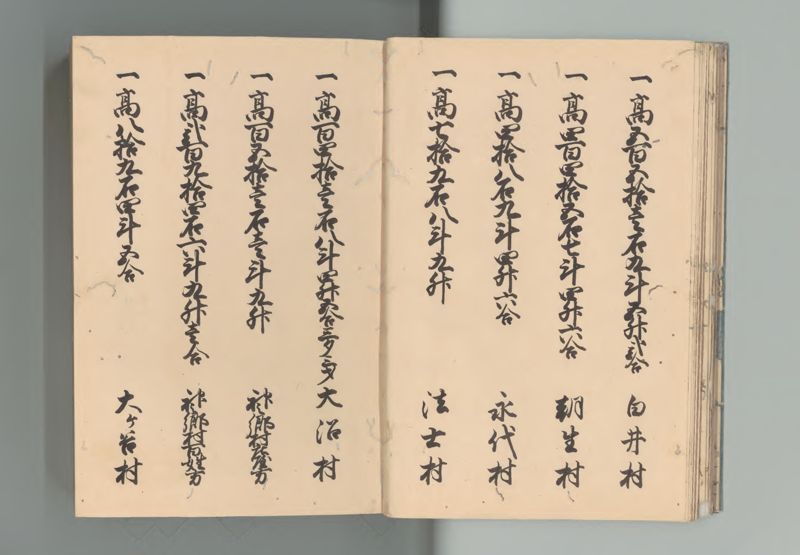 一高五百五拾壱石九斗五升弐合 白井村
一高四百四拾五石七斗四升六合 朝生村
一高四拾八石九斗四升六合 永代村
一高七拾五石八斗九升 法士村
一高百四拾壱石八斗四升五合三夕五才 大沼村
一高百五拾壱石壱斗九升 神郷村
一高弐百九拾四石六斗九升壱合 神郷村百姓方
一高八拾九石四斗五合 大ケ谷村